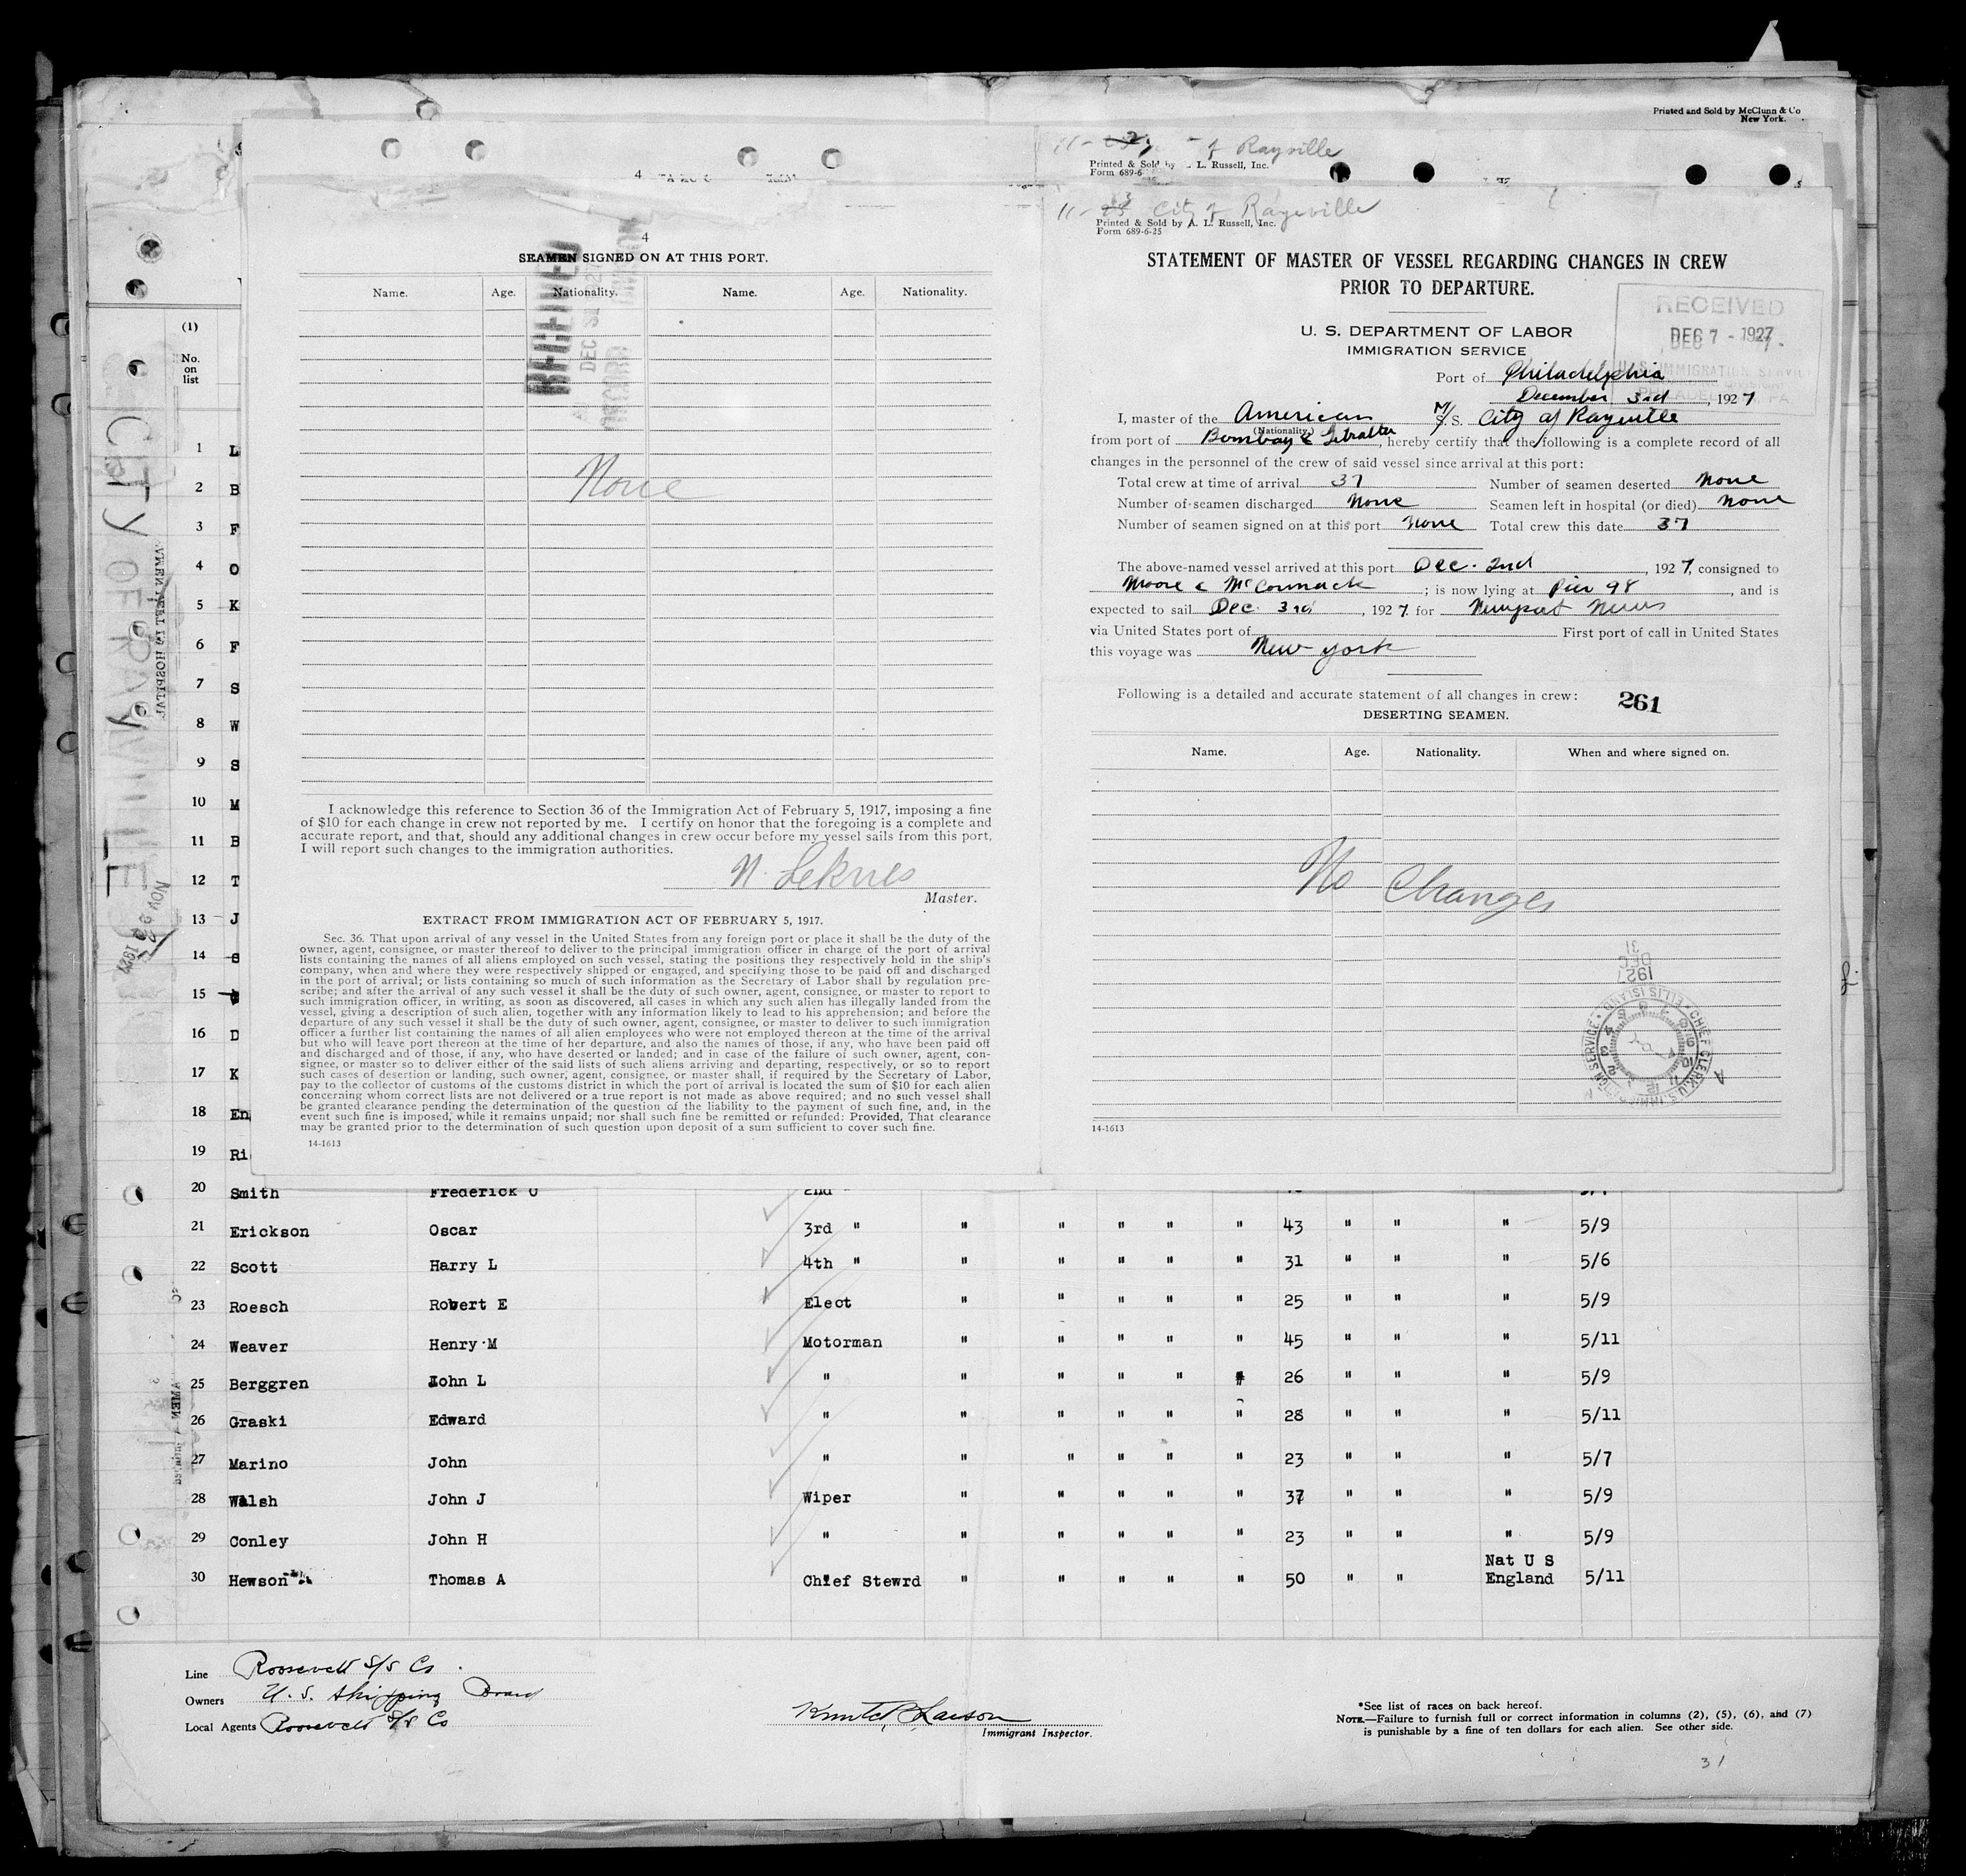 Printed and Sold by McClunn & Co
New York.
11- of Rayville
Printed & Sold by L. Russell, Inc.
Form 689-6
11-23 City of Rayeville
Printed & Sold by A. L. Russell, Inc.
Form 689-6-25
4
SEAMEN SIGNED ON AT THIS PORT.
Name. Age. Nationality. Name. Age. Nationality.
None
I acknowledge this reference to Section 36 of the Immigration Act of February 5, 1917, imposing a fine
of $10 for each change in crew not reported by me. I certify on honor that the foregoing is a complete and
accurate report, and that, should any additional changes in crew occur before my vessel sails from this port,
I will report such changes to the immigration authorities.
N. Leknes
Master.
EXTRACT FROM IMMIGRATION ACT OF FEBRUARY 5, 1917.
Sec. 36. That upon arrival of any vessel in the United States from any foreign port or place it shall be the duty of the
owner, agent, consignee, or master thereof to deliver to the principal immigration officer in charge of the port of arrival
lists containing the names of all aliens employed on such vessel, stating the positions they respectively hold in the ship's
company, when and where they were respectively shipped or engaged, and specifying those to be paid off and discharged
in the port of arrival; or lists containing so much of such information as the Secretary of Labor shall by regulation pre-
scribe; and after the arrival of any such vessel it shall be the duty of such owner, agent, consignee, or master to report to
such immigration officer, in writing, as soon as discovered, all cases in which any such alien has illegally landed from the
vessel, giving a description of such alien, together with any information likely to lead to his apprehension; and before the
departure of any such vessel it shall be the duty of such owner, agent, consignee, or master to deliver to such immigration
officer a further list containing the names of all alien employees who were not employed thereon at the time of the arrival
but who will leave port thereon at the time of her departure, and also the names of those, if any, who have been paid off
and discharged and of those, if any, who have deserted or landed; and in case of the failure of such owner, agent, con-
signee, or master so to deliver either of the said lists of such aliens arriving and departing, respectively, or so to report
such cases of desertion or landing, such owner, agent, consignee, or master shall, if required by the Secretary of Labor,
pay to the collector of customs of the customs district in which the port of arrival is located the sum of $10 for each alien
concerning whom correct lists are not delivered or a true report is not made as above required; and no such vessel shall
be granted clearance pending the determination of the question of the liability to the payment of such fine, and, in the
event such fine is imposed, while it remains unpaid; nor shall such fine be remitted or refunded: Provided, That clearance
may be granted prior to the determination of such question upon deposit of a sum sufficient to cover such fine.
14-1613
STATEMENT OF MASTER OF VESSEL REGARDING CHANGES IN CREW
PRIOR TO DEPARTURE.
U. S. DEPARTMENT OF LABOR
IMMIGRATION SERVICE
RECEIVED
DEC 7 - 1927
Port of Philadelphia
December 3rd, 1927
I, master of the American M/S.S. City of Rayville
(Nationality.)
from port of Bombay & Gibraltar, hereby certify that the following is a complete record of all
changes in the personnel of the crew of said vessel since arrival at this port:
Total crew at time of arrival 37 Number of seamen deserted None
Number of seamen discharged None Seamen left in hospital (or died) None
Number of seamen signed on at this port None Total crew this date 37
The above-named vessel arrived at this port Dec. 2nd, 1927, consigned to
Moore & McCormack; is now lying at Pier 98, and is
expected to sail Dec. 3rd, 1927 for Newport News
via United States port of First port of call in United States
this voyage was New York
Following is a detailed and accurate statement of all changes in crew: 261
DESERTING SEAMEN.
Name. Age. Nationality. When and where signed on.
No Changes
1927
DEC
31
CHIEF CLERK, U.S. IMMIGRATION SERVICE · ELLIS ISLAND
14-1613
CITY OF RAYVILLE
NOV 23 1927
(1)
No.
on
list
1 L
2 B
3 F
4 O
5 K
6 F
7 S
8 W
9 S
10 M
11 B
12 T
13 J
14 S
15
16 D
17 K
18 En
19 Ri
20 Smith Frederick O 2nd "
21 Erickson Oscar 3rd " " " " " " 43 " " " 5/9
22 Scott Harry L 4th " " " " " " 31 " " " 5/6
23 Roesch Robert E Elect " " " " " 25 " " " 5/9
24 Weaver Henry M Motorman " " " " " 45 " " " 5/11
25 Berggren John L " " " " " " 26 " " " 5/9
26 Graski Edward " " " " " " 28 " " " 5/11
27 Marino John " " " " " " 23 " " " 5/7
28 Walsh John J Wiper " " " " " 37 " " " 5/9
29 Conley John H " " " " " " 23 " " " 5/9
30 Hewson Thomas A Chief Stewrd " " " " " 50 " " Nat U S
England 5/11
Line Roosevelt S/S Co.
Owners U. S. Shipping Board
Local Agents Roosevelt S/S Co
Immigrant Inspector.
*See list of races on back hereof.
NOTE.—Failure to furnish full or correct information in columns (2), (5), (6), and (7)
is punishable by a fine of ten dollars for each alien. See other side.
31